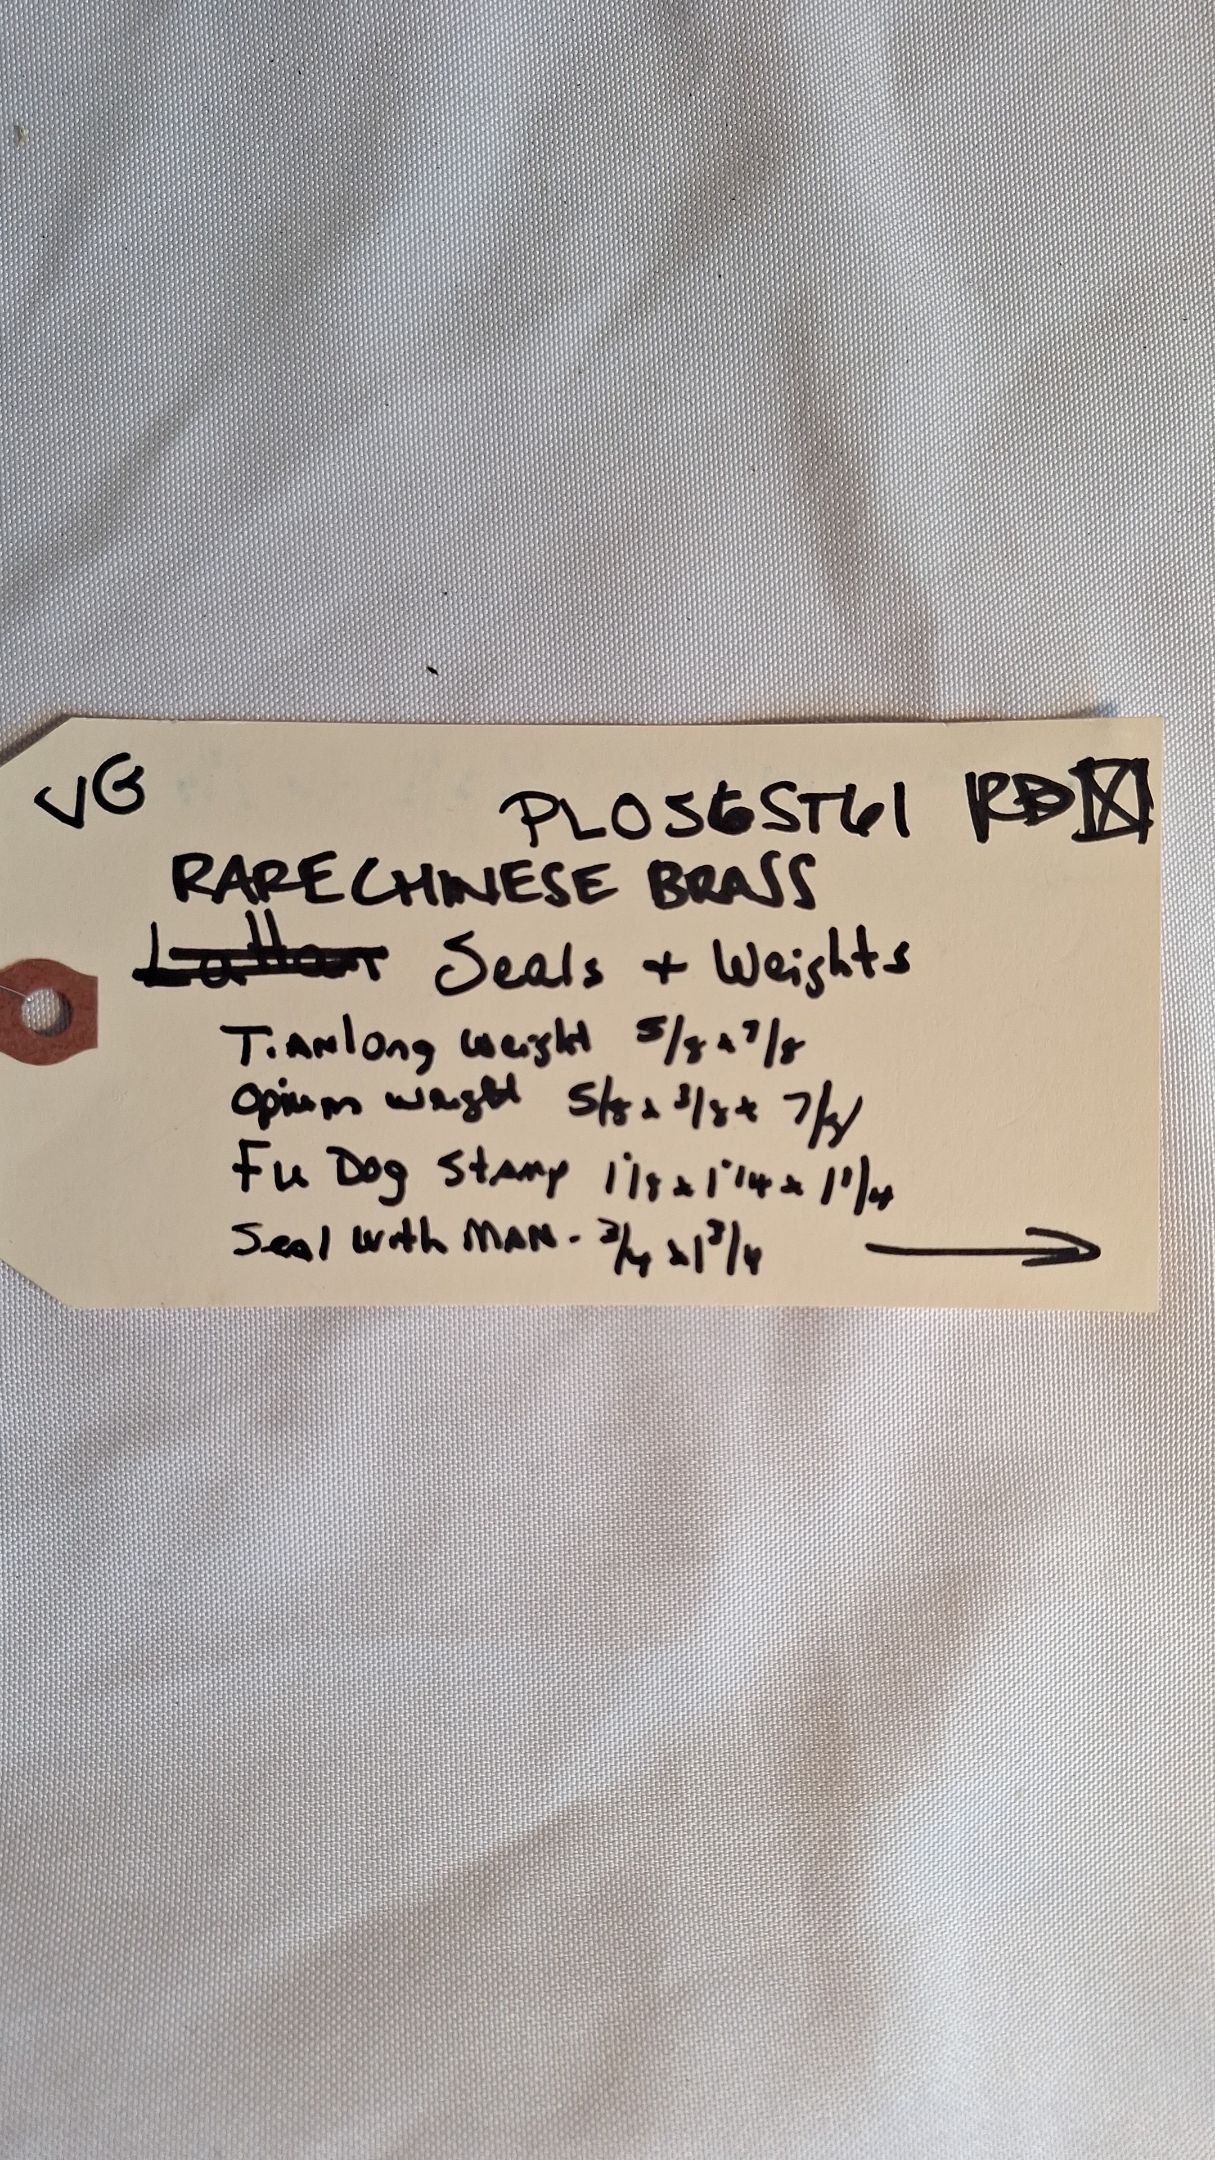 VG
PL056ST61 RD
RARE CHINESE BRASS
Seals + Weights
Tianlong weight 5/8 x 7/8
opium weight 5/8 x 3/8 x 7/8
Fu Dog Stamp 1 1/8 x 1 1/4 x 1 1/4
Seal with MAN - 3/4 x 1 3/4